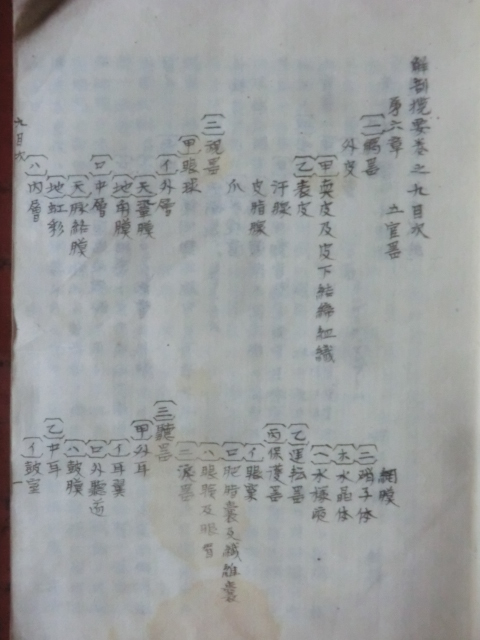 解剖攬要巻之九目次
第六章 五官器
(一)觸器
外皮
(甲)眞皮及皮下結締組織
(乙)表皮
汗腺
皮脂腺
爪
(二)視器
(甲)眼球
(イ)外層
(天)鞏膜
(地)角膜
(ロ)中層
(天)脉絡膜
(地)虹彩
(ハ)内層
九目次
網膜
(二)硝子体
(ホ)水晶体
(ヘ)水様液
(乙)運転器
(丙)保護器
(イ)眼窠
(ロ)肥脂嚢及織組嚢
(ハ)眼瞼及眼眉
(二)涙器
(三)聴器
(甲)外耳
(イ)耳翼
(ロ)外聴道
(ハ)鼓膜
(乙)中耳
(イ)鼓室
一